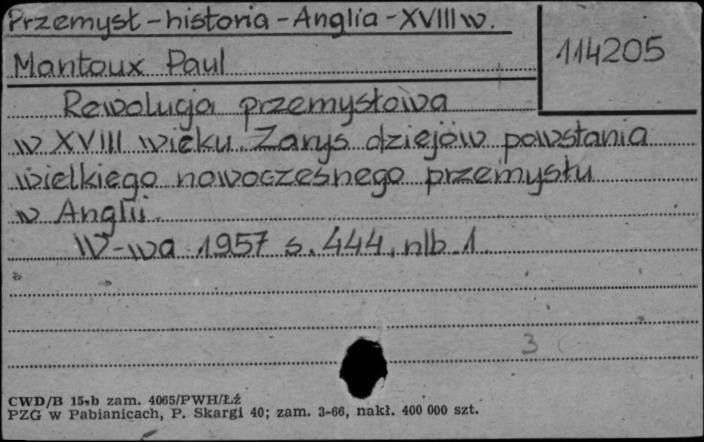 Przemysł-historia-Anglia-XVIII w.
114205
Mantoux Paul
Rewolucja przemysłowa
w XVIII wieku. Zarys dziejów powstania
wielkiego nowoczesnego przemysłu
w Anglii.
W-wa 1957 s. 444, nlb. 1.
3
CWD/B 15-b zam. 4065/PWH/Łź
PZG w Pabianicach, P. Skargi 40; zam. 3-66, nakł. 400 000 szt.